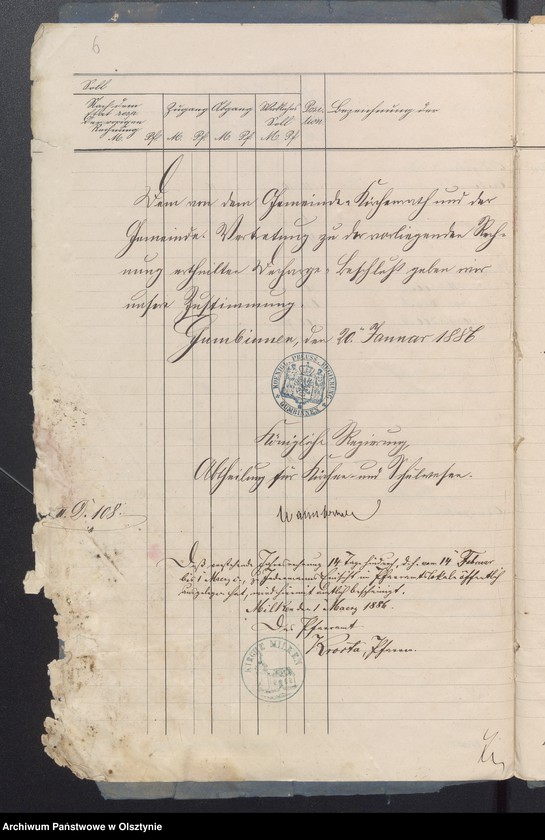 6
Soll
Nach dem
Etat resp.
der vorigen
Rechnung
M. Pf.
Zugang
M. Pf.
Abgang
M. Pf.
Wirkliches
Soll
M. Pf.
Bezeichnung der
Dem von dem Gemeinde-Kirchenrath und der
Gemeinde-Vertretung zu der vorliegenden Rech-
nung ertheilten Decharge-Beschluß geben wir
unsere Zustimmung.
Gumbinnen, den 20. Januar 1886
KOENIGL. PREUSS. REGIERUNG
GUMBINNEN
Königliche Regierung,
Abtheilung für Kirchen- und Schulwesen.
D. 108.
Daß vorstehende Jahresrechnung 14 Tage hindurch, d. h. vom 14 Februar
bis 1 Maerz c., zu Jedermanns Einsicht im Pfarramtslokale öffentlich
ausgelegen hat, wird hiermit amtlich bescheinigt.
Milken den 1 Maerz 1886.
Das Pfarramt
Krosta, Pfarrer.
KIRCHE MILKEN
Archiwum Państwowe w Olsztynie